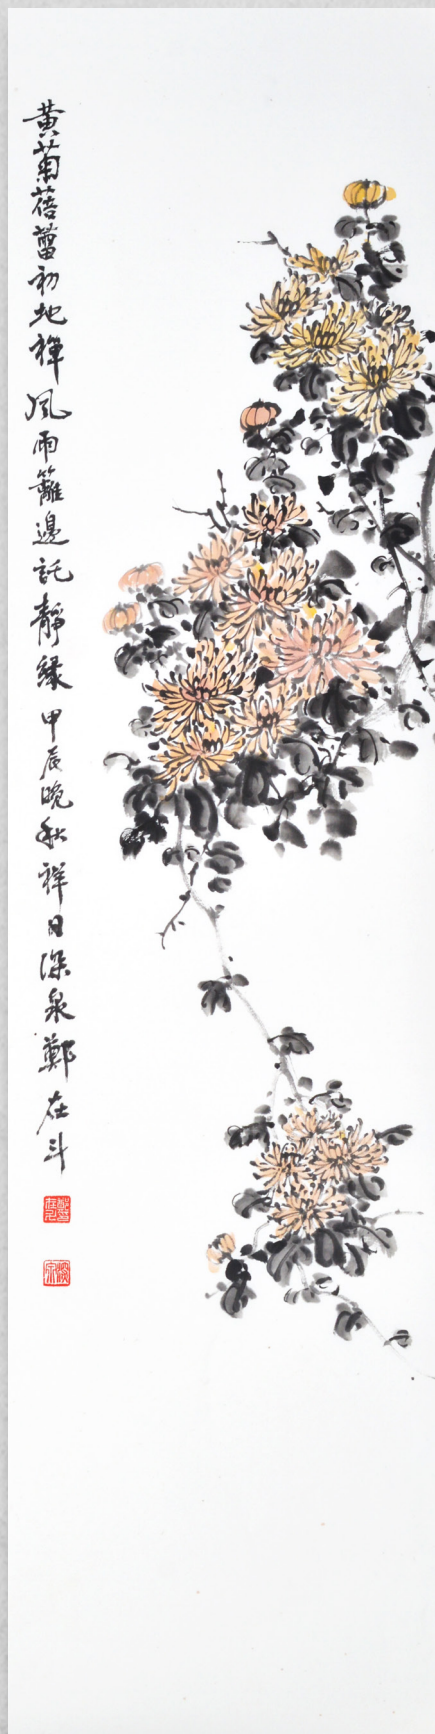 黃菊蓓蕾初地禪風雨籬邊託靜緣甲辰晚秋祥日深泉鄭在斗